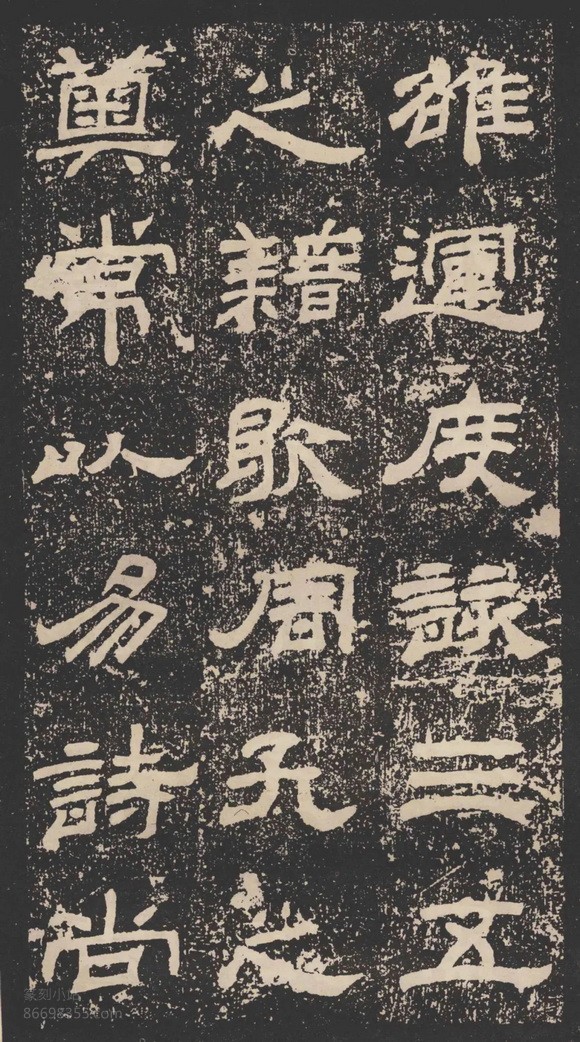 雒運度詠三五
之籍歌周孔之
奧常以易詩尚
篆刻小站
86698355.com